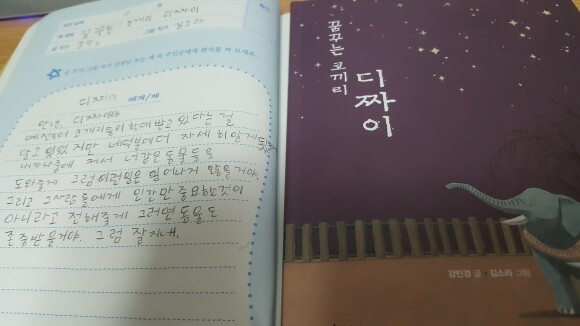 꿈꾸는 코끼리 디짜이
디짜이 에게/께
안녕 디짜이야
예전부터 코끼리들이 학대 받고 있다는 걸
알고 있었지만 네 덕분에 더 자세히 알게 됬어
내가 나중에 커서 너 같은 동물들을
도와줄게 그럼 이런 일은 일어나지 않을 거야.
그리고 그 사람들에게 인간만 중요한 것이
아니라고 전해줄게 그러면 동물도
존중받을 거야. 그럼 잘 지내.
꿈꾸는 코끼리
디짜이
강민경 글 • 김소라 그림